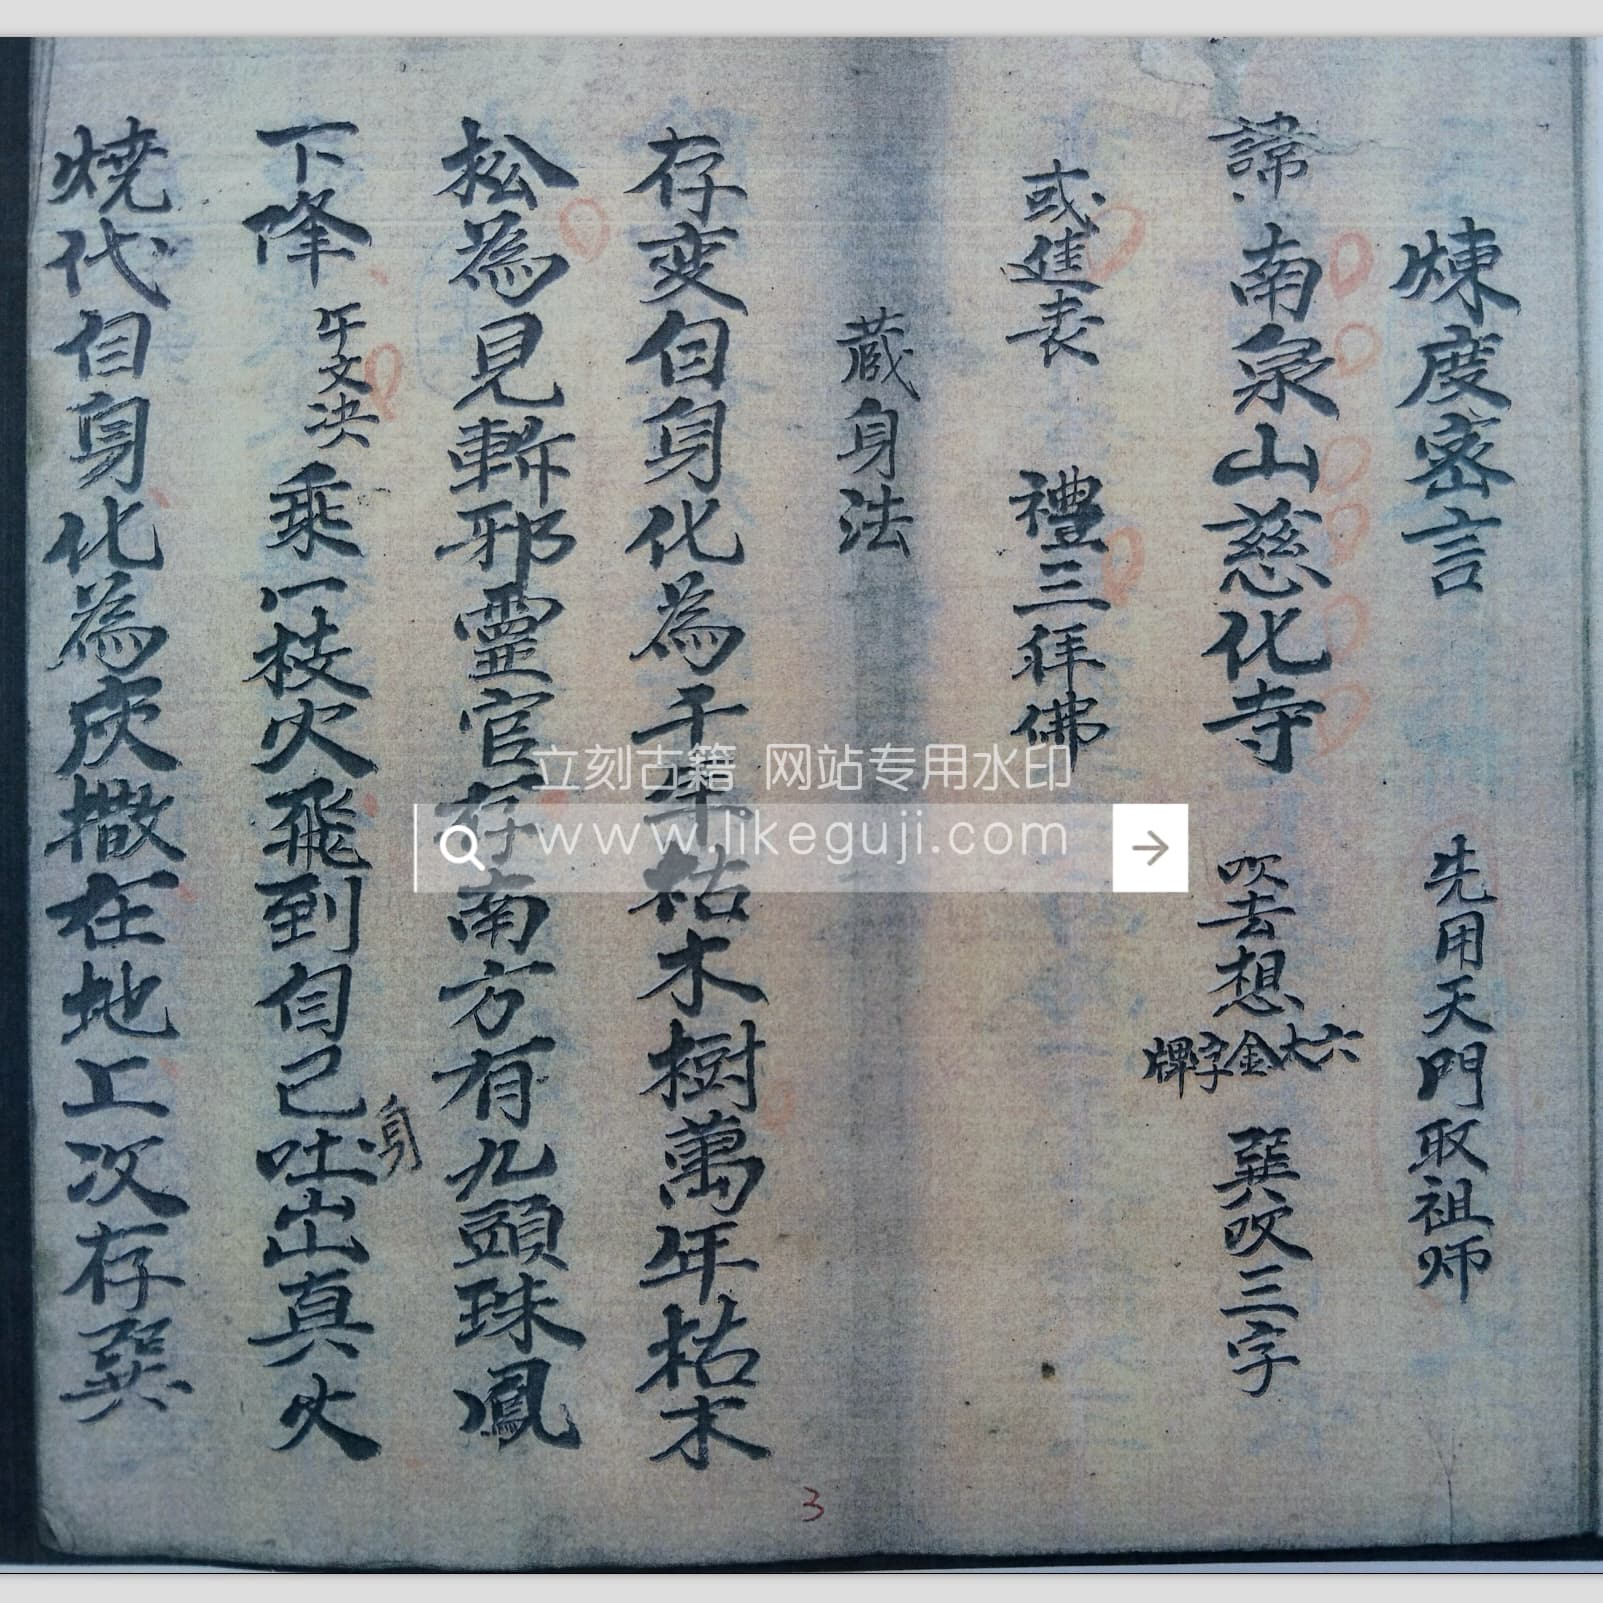 煉度密言 先用天門取祖师
諱 南泉山慈化寺 吹去想 六大金字牌 巽吹三字
或進表 禮三拜佛
蔵身法
存变自身化為千年枯木樹萬年枯木
松為見斬邪靈官存南方有九頭珠鳳
下降 午文决 乘一枝火飛到自己身吐出真火
燒代自身化為灰撒在地上次存巽
立刻古籍 网站专用水印
www.likeguji.com
3